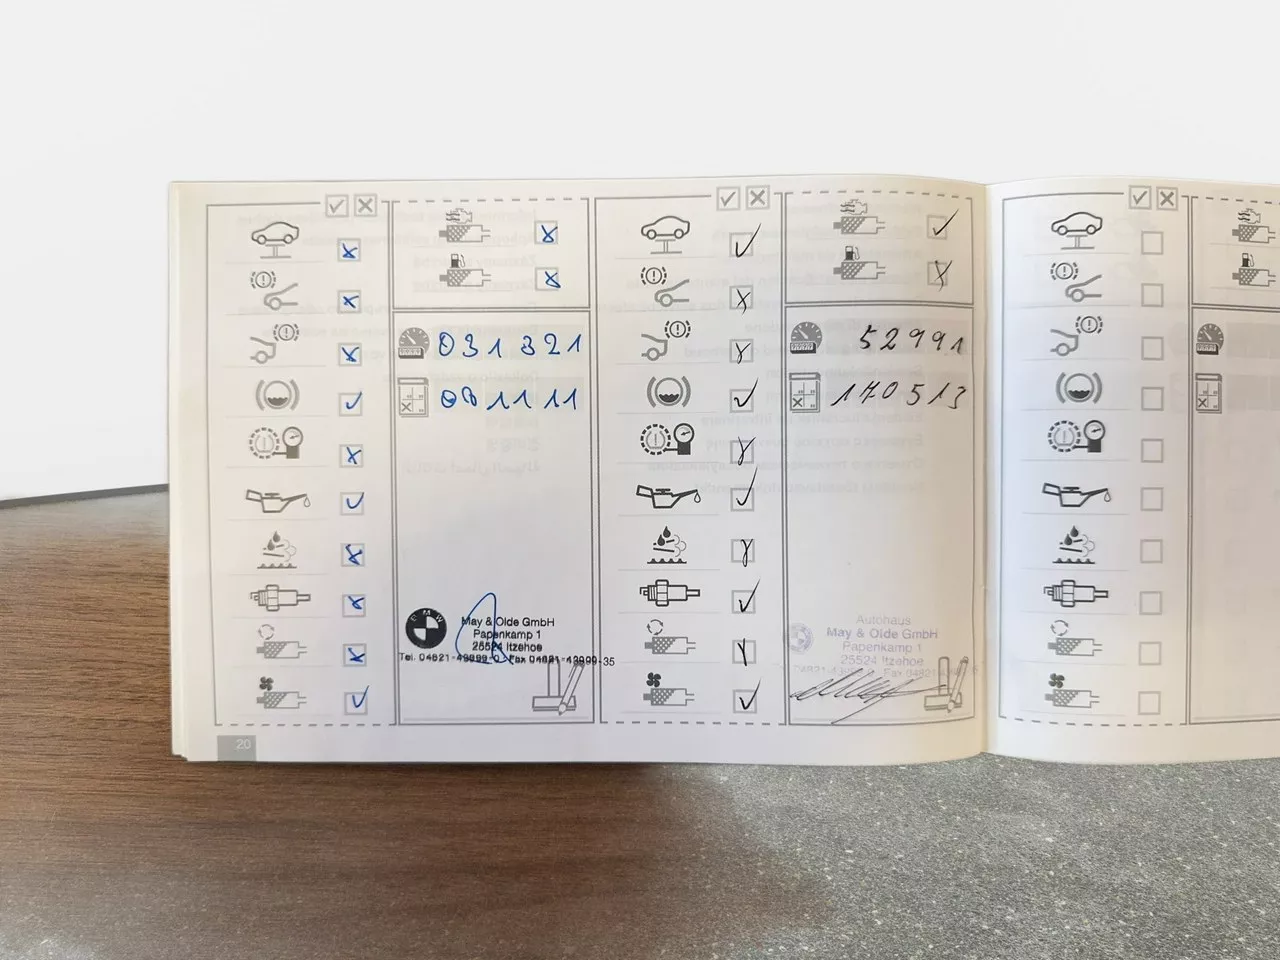 031321
081111
BMW
May & Olde GmbH
Papenkamp 1
25524 Itzehoe
Tel. 04821-43999-0 Fax 04821-43999-35
52991
170513
Autohaus
May & Olde GmbH
Papenkamp 1
25524 Itzehoe
20